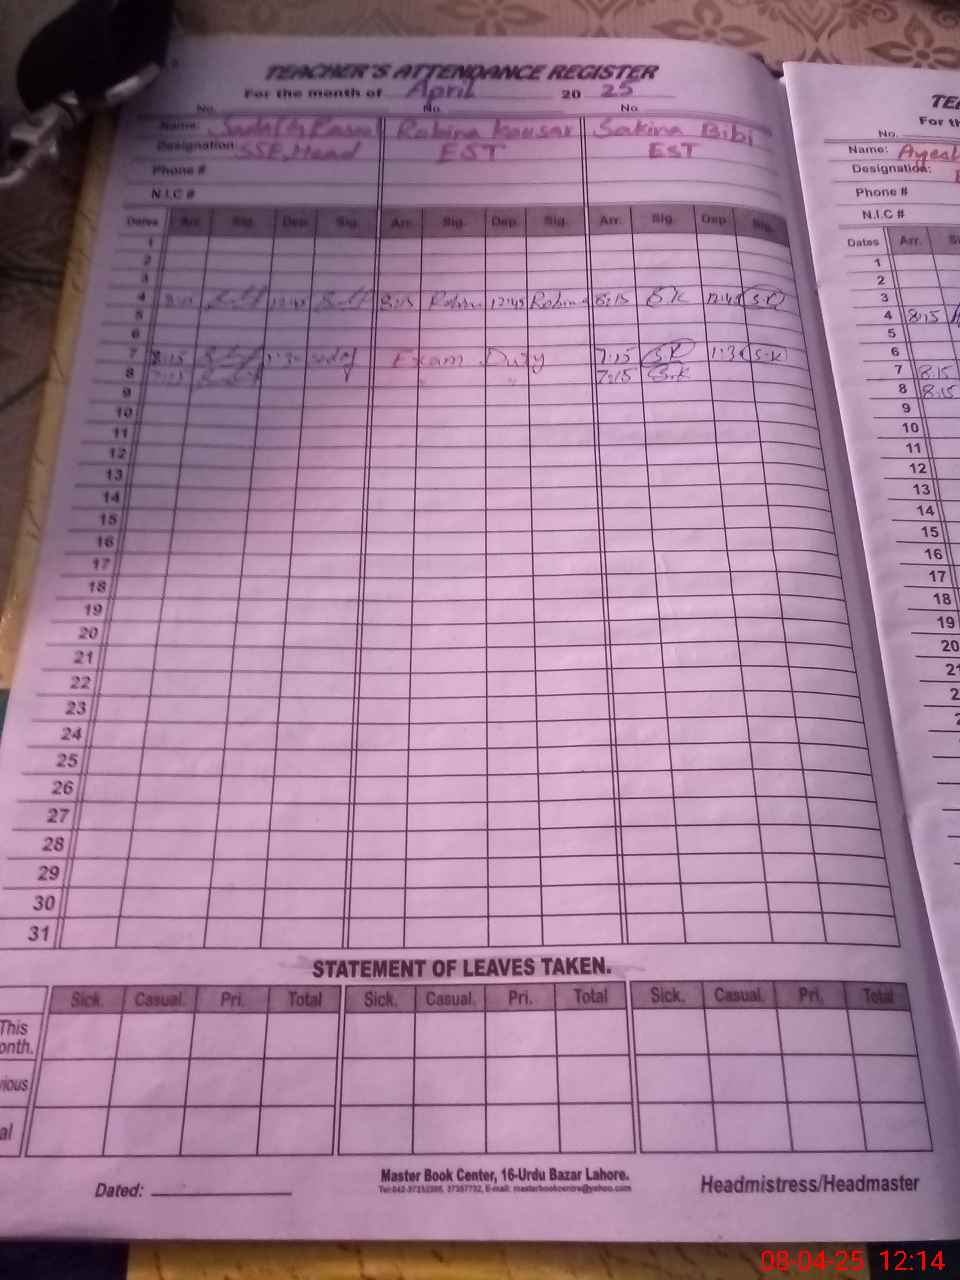 TEACHER'S ATTENDANCE REGISTER
For the month of April 20 25
No. No. No.
Name: Robina Kousar Sakina Bibi
Designation: SSE, Head EST EST
Phone #
N.I.C #
Dates Arr. Sig. Dep. Sig. Arr. Sig. Dep. Sig. Arr. Sig. Dep. Sig.
1
2
3
4 12:45 8:15 Robina 12:45 Robina 8:15 12:45 S.K
5
6
7 8:15 1:30 Exam Duty 7:15 S.K 1:30 S.K
8 7:15 " " 7:15 S.K
9
10
11
12
13
14
15
16
17
18
19
20
21
22
23
24
25
26
27
28
29
30
31
STATEMENT OF LEAVES TAKEN.
Sick. Casual. Pri. Total Sick. Casual. Pri. Total Sick. Casual. Pri. Total
This
onth.
vious
al
Dated:
Master Book Center, 16-Urdu Bazar Lahore.
Headmistress/Headmaster
TE
For th
No.
Name:
Designation:
Phone #
N.I.C #
Dates Arr. S
1
2
3
4 8:15
5
6
7 8:15
8 8:15
9
10
11
12
13
14
15
16
17
18
19
20
21
2
2
08-04-25 12:14